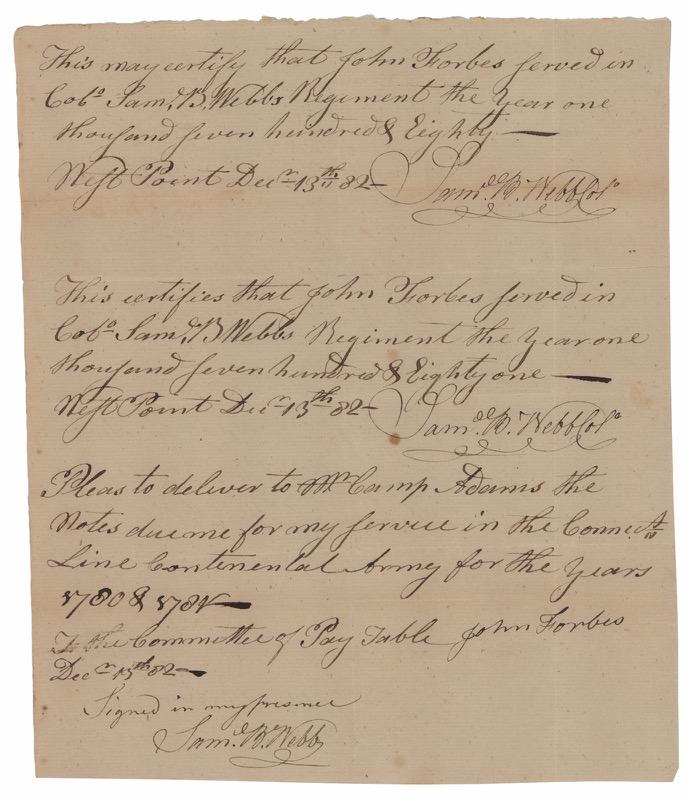 This may certify that John Forbes served in
Colo. Saml. B. Webbs Regiment the Year one
thousand seven hundred & Eighty —
West Point Decr. 13th 82 — Saml. B. Webb Colo.
This certifies that John Forbes served in
Colo. Saml. B Webbs Regiment the Year one
thousand seven hundred & Eighty one —
West Point Decr. 13th 82 — Saml. B. Webb Colo.
Pleas to deliver to Mr Camp Adams the
Notes due me for my service in the Connect
Line Continental Army for the Years
1780 & 1781 —
To the Committee of Pay Table John Forbes
Decr. 13th 82 —
Signed in my presence
Saml. B. Webb